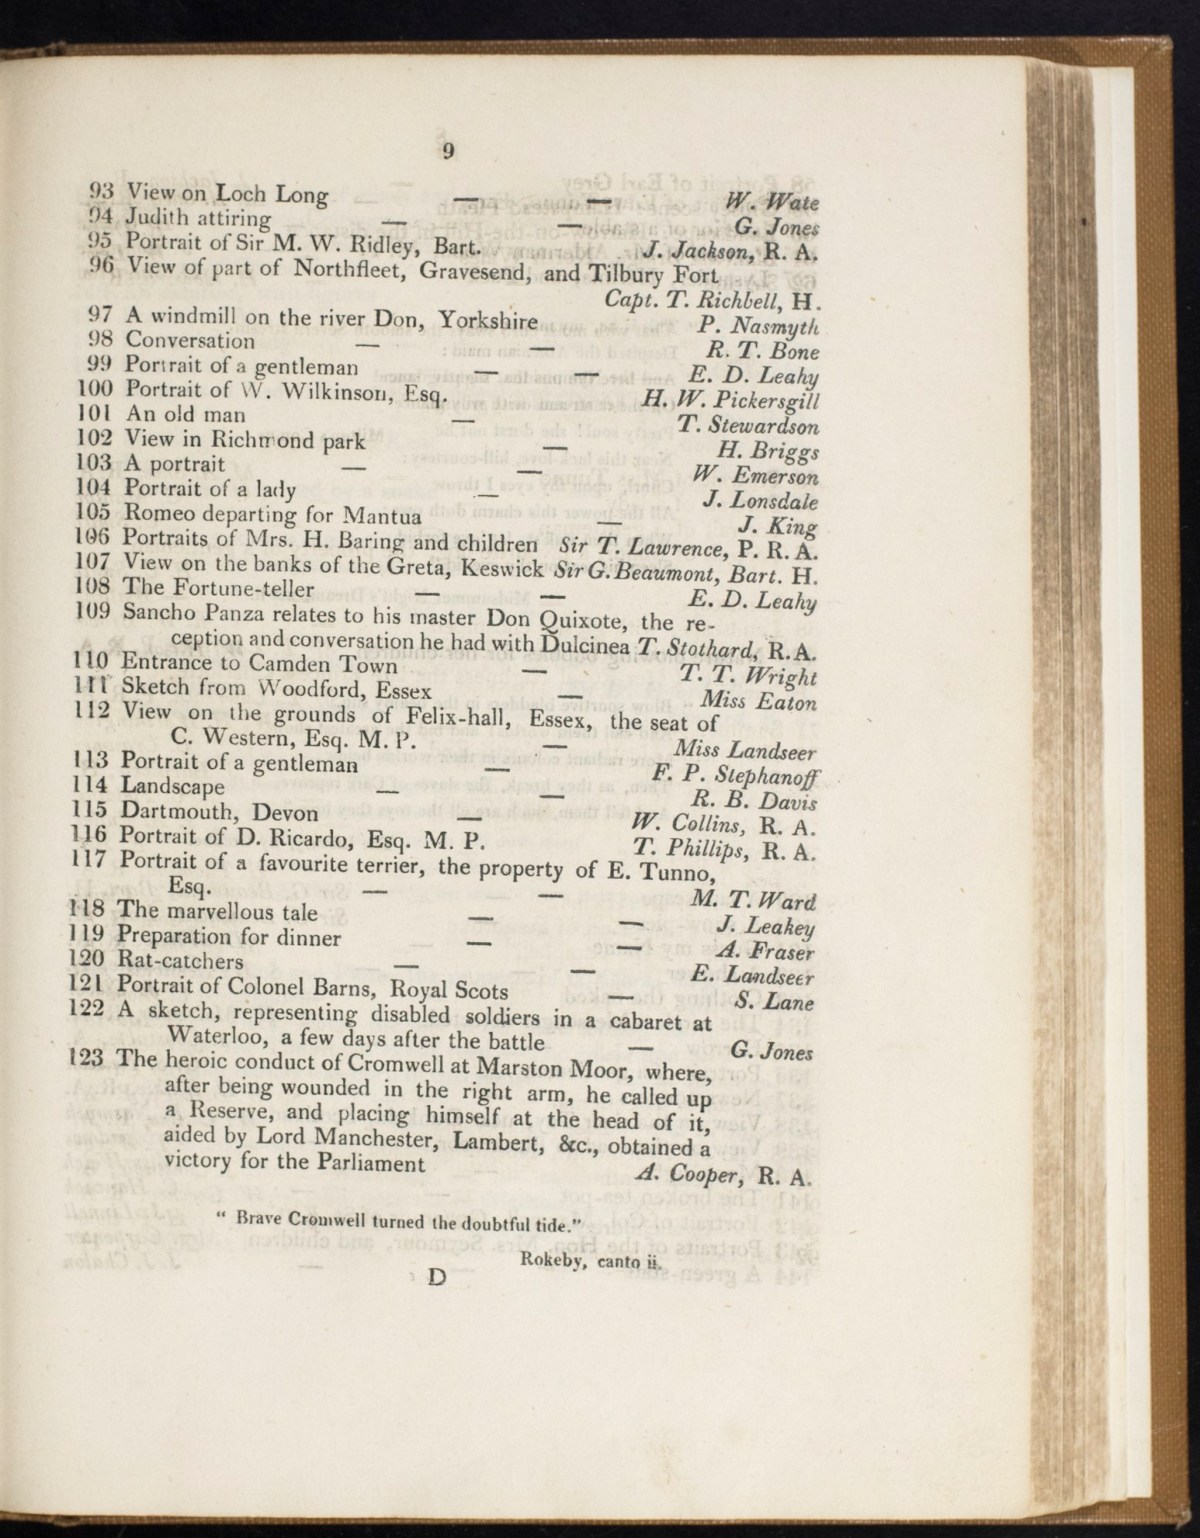 9
93 View on Loch Long — — W. Wate
94 Judith attiring — — G. Jones
95 Portrait of Sir M. W. Ridley, Bart. J. Jackson, R. A.
96 View of part of Northfleet, Gravesend, and Tilbury Fort
Capt. T. Richbell, H.
97 A windmill on the river Don, Yorkshire P. Nasmyth
98 Conversation — — R. T. Bone
99 Portrait of a gentleman — — E. D. Leahy
100 Portrait of W. Wilkinson, Esq. H. W. Pickersgill
101 An old man — T. Stewardson
102 View in Richmond park — H. Briggs
103 A portrait — — W. Emerson
104 Portrait of a lady — J. Lonsdale
105 Romeo departing for Mantua — J. King
106 Portraits of Mrs. H. Baring and children Sir T. Lawrence, P. R. A.
107 View on the banks of the Greta, Keswick Sir G. Beaumont, Bart. H.
108 The Fortune-teller — — E. D. Leahy
109 Sancho Panza relates to his master Don Quixote, the re-
ception and conversation he had with Dulcinea T. Stothard, R. A.
110 Entrance to Camden Town — T. T. Wright
111 Sketch from Woodford, Essex — Miss Eaton
112 View on the grounds of Felix-hall, Essex, the seat of
C. Western, Esq. M. P. — Miss Landseer
113 Portrait of a gentleman — F. P. Stephanoff
114 Landscape — — R. B. Davis
115 Dartmouth, Devon — W. Collins, R. A.
116 Portrait of D. Ricardo, Esq. M. P. T. Phillips, R. A.
117 Portrait of a favourite terrier, the property of E. Tunno,
Esq. — — M. T. Ward
118 The marvellous tale — — J. Leakey
119 Preparation for dinner — — A. Fraser
120 Rat-catchers — — E. Landseer
121 Portrait of Colonel Barns, Royal Scots — S. Lane
122 A sketch, representing disabled soldiers in a cabaret at
Waterloo, a few days after the battle — G. Jones
123 The heroic conduct of Cromwell at Marston Moor, where,
after being wounded in the right arm, he called up
a Reserve, and placing himself at the head of it,
aided by Lord Manchester, Lambert, &c., obtained a
victory for the Parliament A. Cooper, R. A.
“ Brave Cromwell turned the doubtful tide.”
Rokeby, canto ii.
D